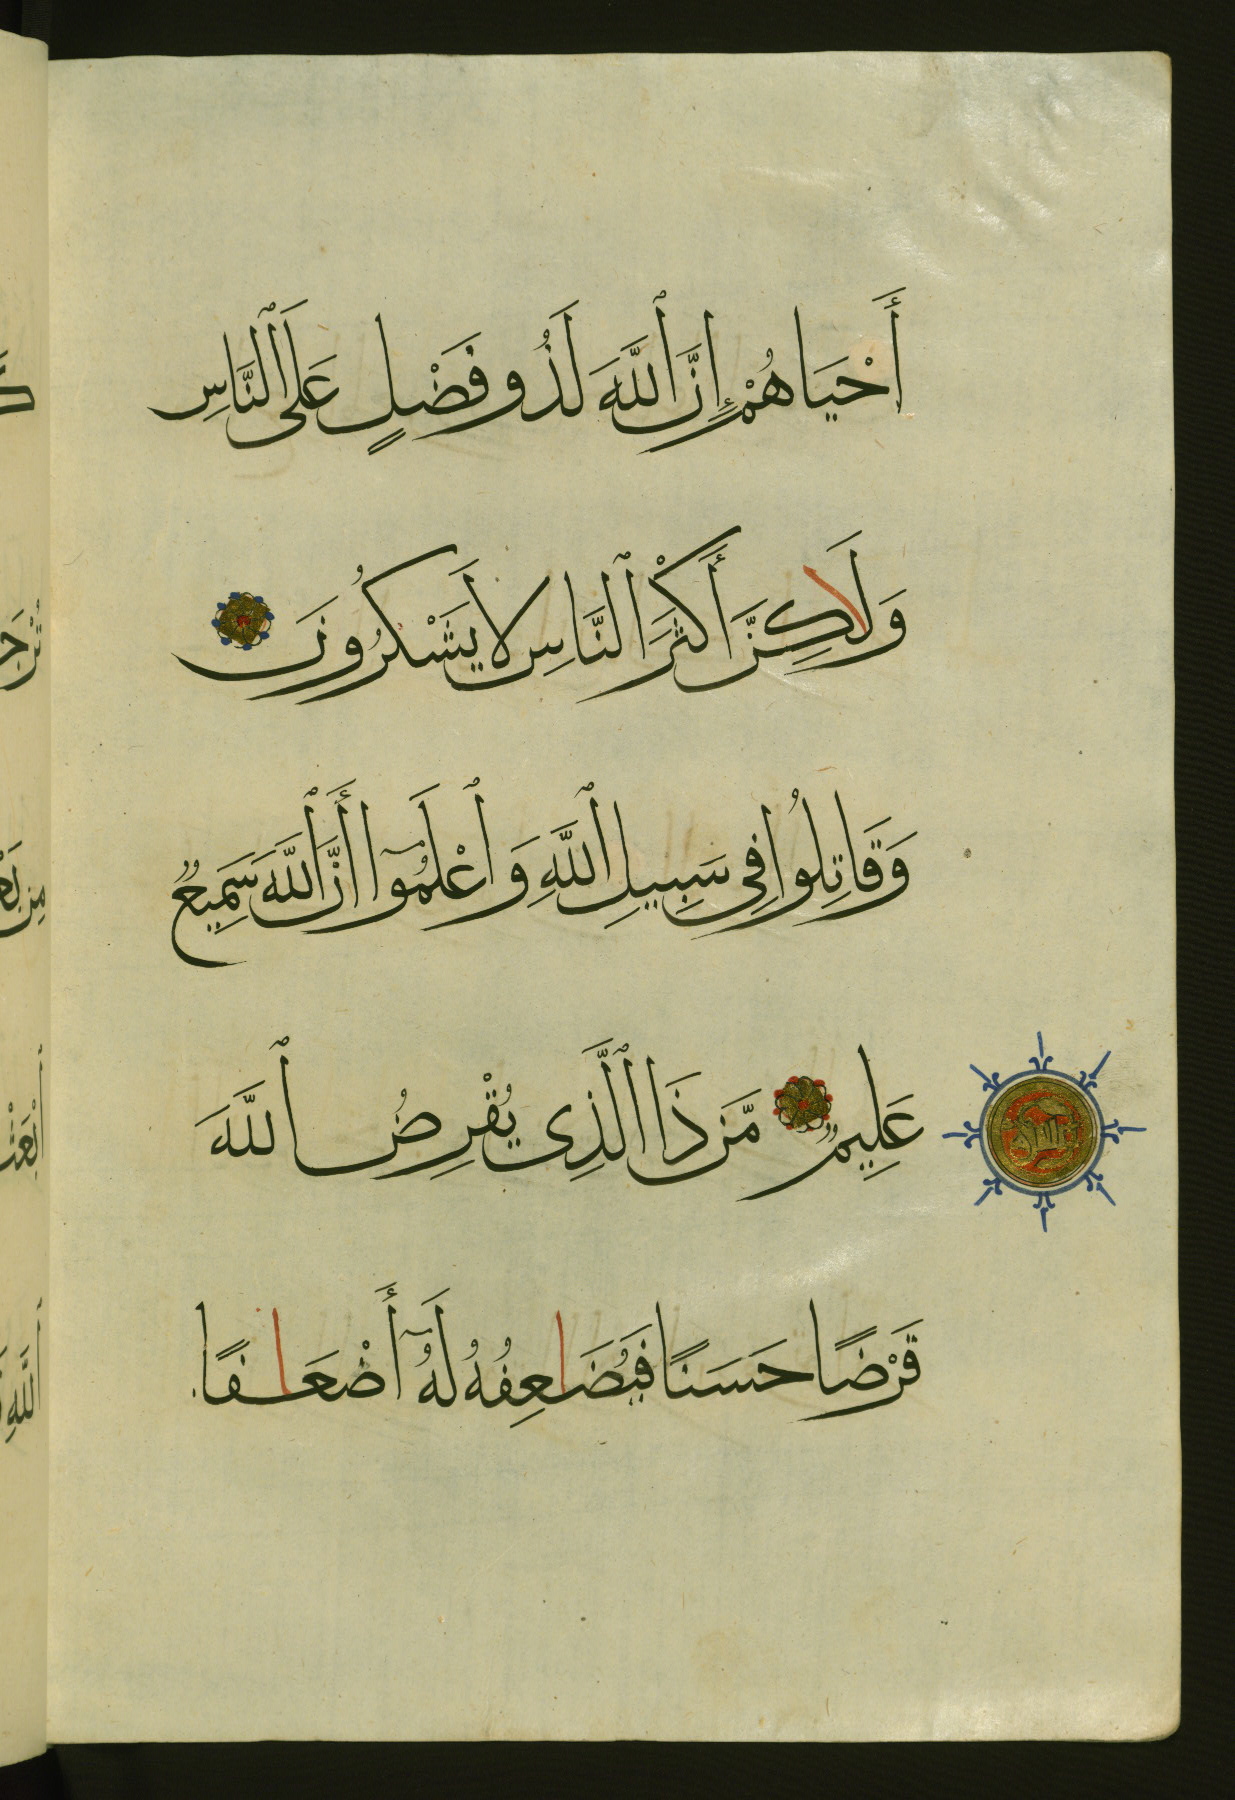 أَحْيَاهُمْ إِنَّ ٱللَّهَ لَذُو فَضْلٍ عَلَى ٱلنَّاسِ
وَلَاكِنَّ أَكْثَرَ ٱلنَّاسِ لَا يَشْكُرُونَ
وَقَاتِلُوا فِي سَبِيلِ ٱللَّهِ وَٱعْلَمُوٓا أَنَّ ٱللَّهَ سَمِيعٌ
عَلِيمٌ مَّن ذَا ٱلَّذِى يُقْرِضُ ٱللَّهَ
قَرْضًا حَسَنًا فَيُضَاعِفُهُ لَهُٓ أَضْعَافًا